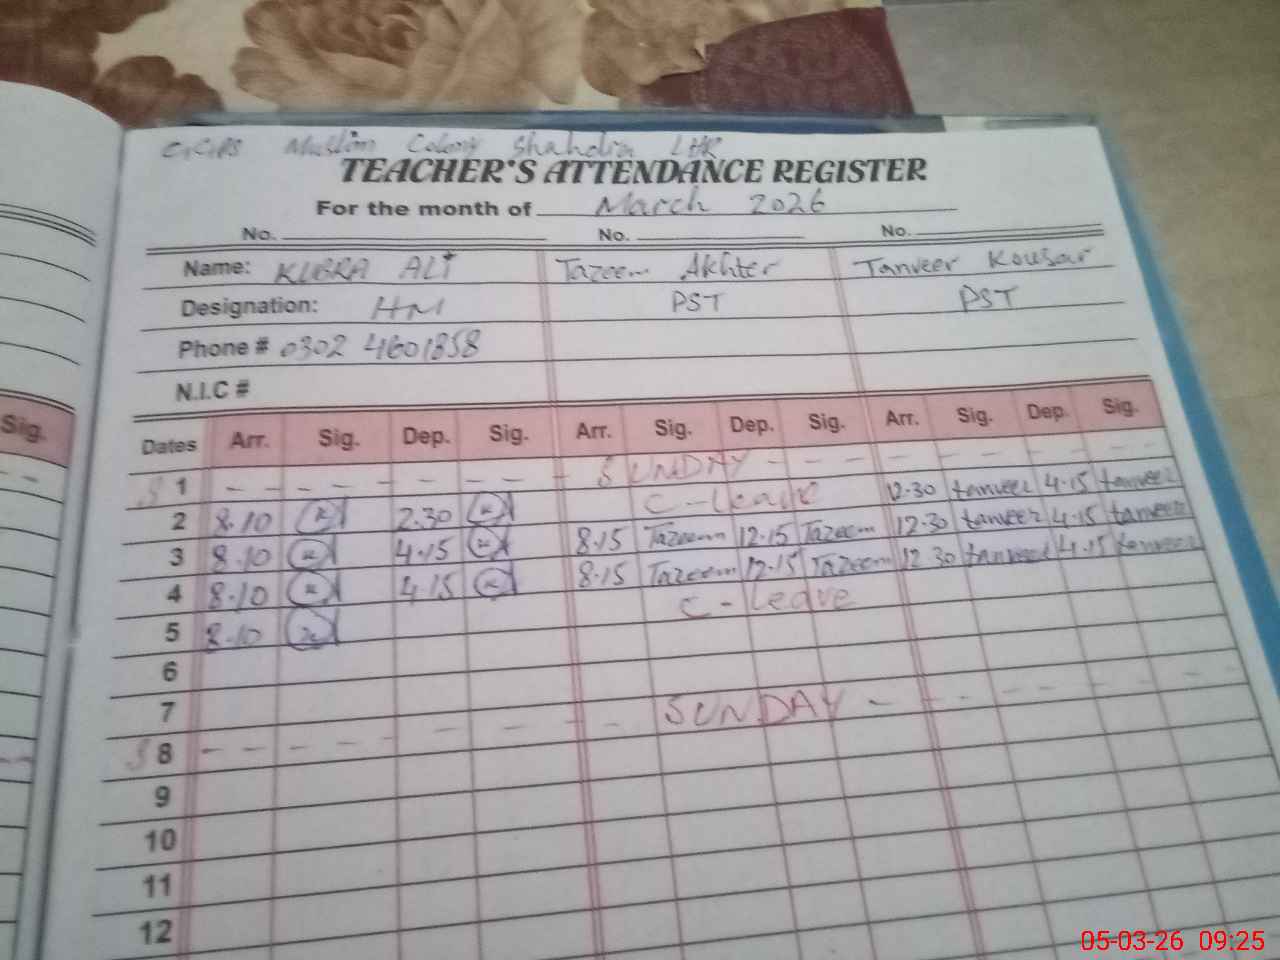 Muslim Colony Shahdra LHR
TEACHER'S ATTENDANCE REGISTER
For the month of March 2026
No. No. No.
Name: KUBRA ALI Tazeem Akhter Tanveer Kousar
Designation: HM PST PST
Phone # 0302 4601858
N.I.C #
Sig.
Dates Arr. Sig. Dep. Sig. Arr. Sig. Dep. Sig. Arr. Sig. Dep. Sig.
S 1 - - - - - - - - SUNDAY - - - - - - -
2 8.10 2.30 C-leave 12.30 tanveer 4.15 tanveer
3 8.10 4.15 8.15 Tazeem 12.15 Tazeem 12.30 tanveer 4.15 tanveer
4 8.10 4.15 8.15 Tazeem 12.15 Tazeem 12.30 tanveer 4.15 tanveer
5 8.10 C-leave
6
7
S 8 - - - - - - - - SUNDAY - - - - - - -
9
10
11
12
05-03-26 09:25